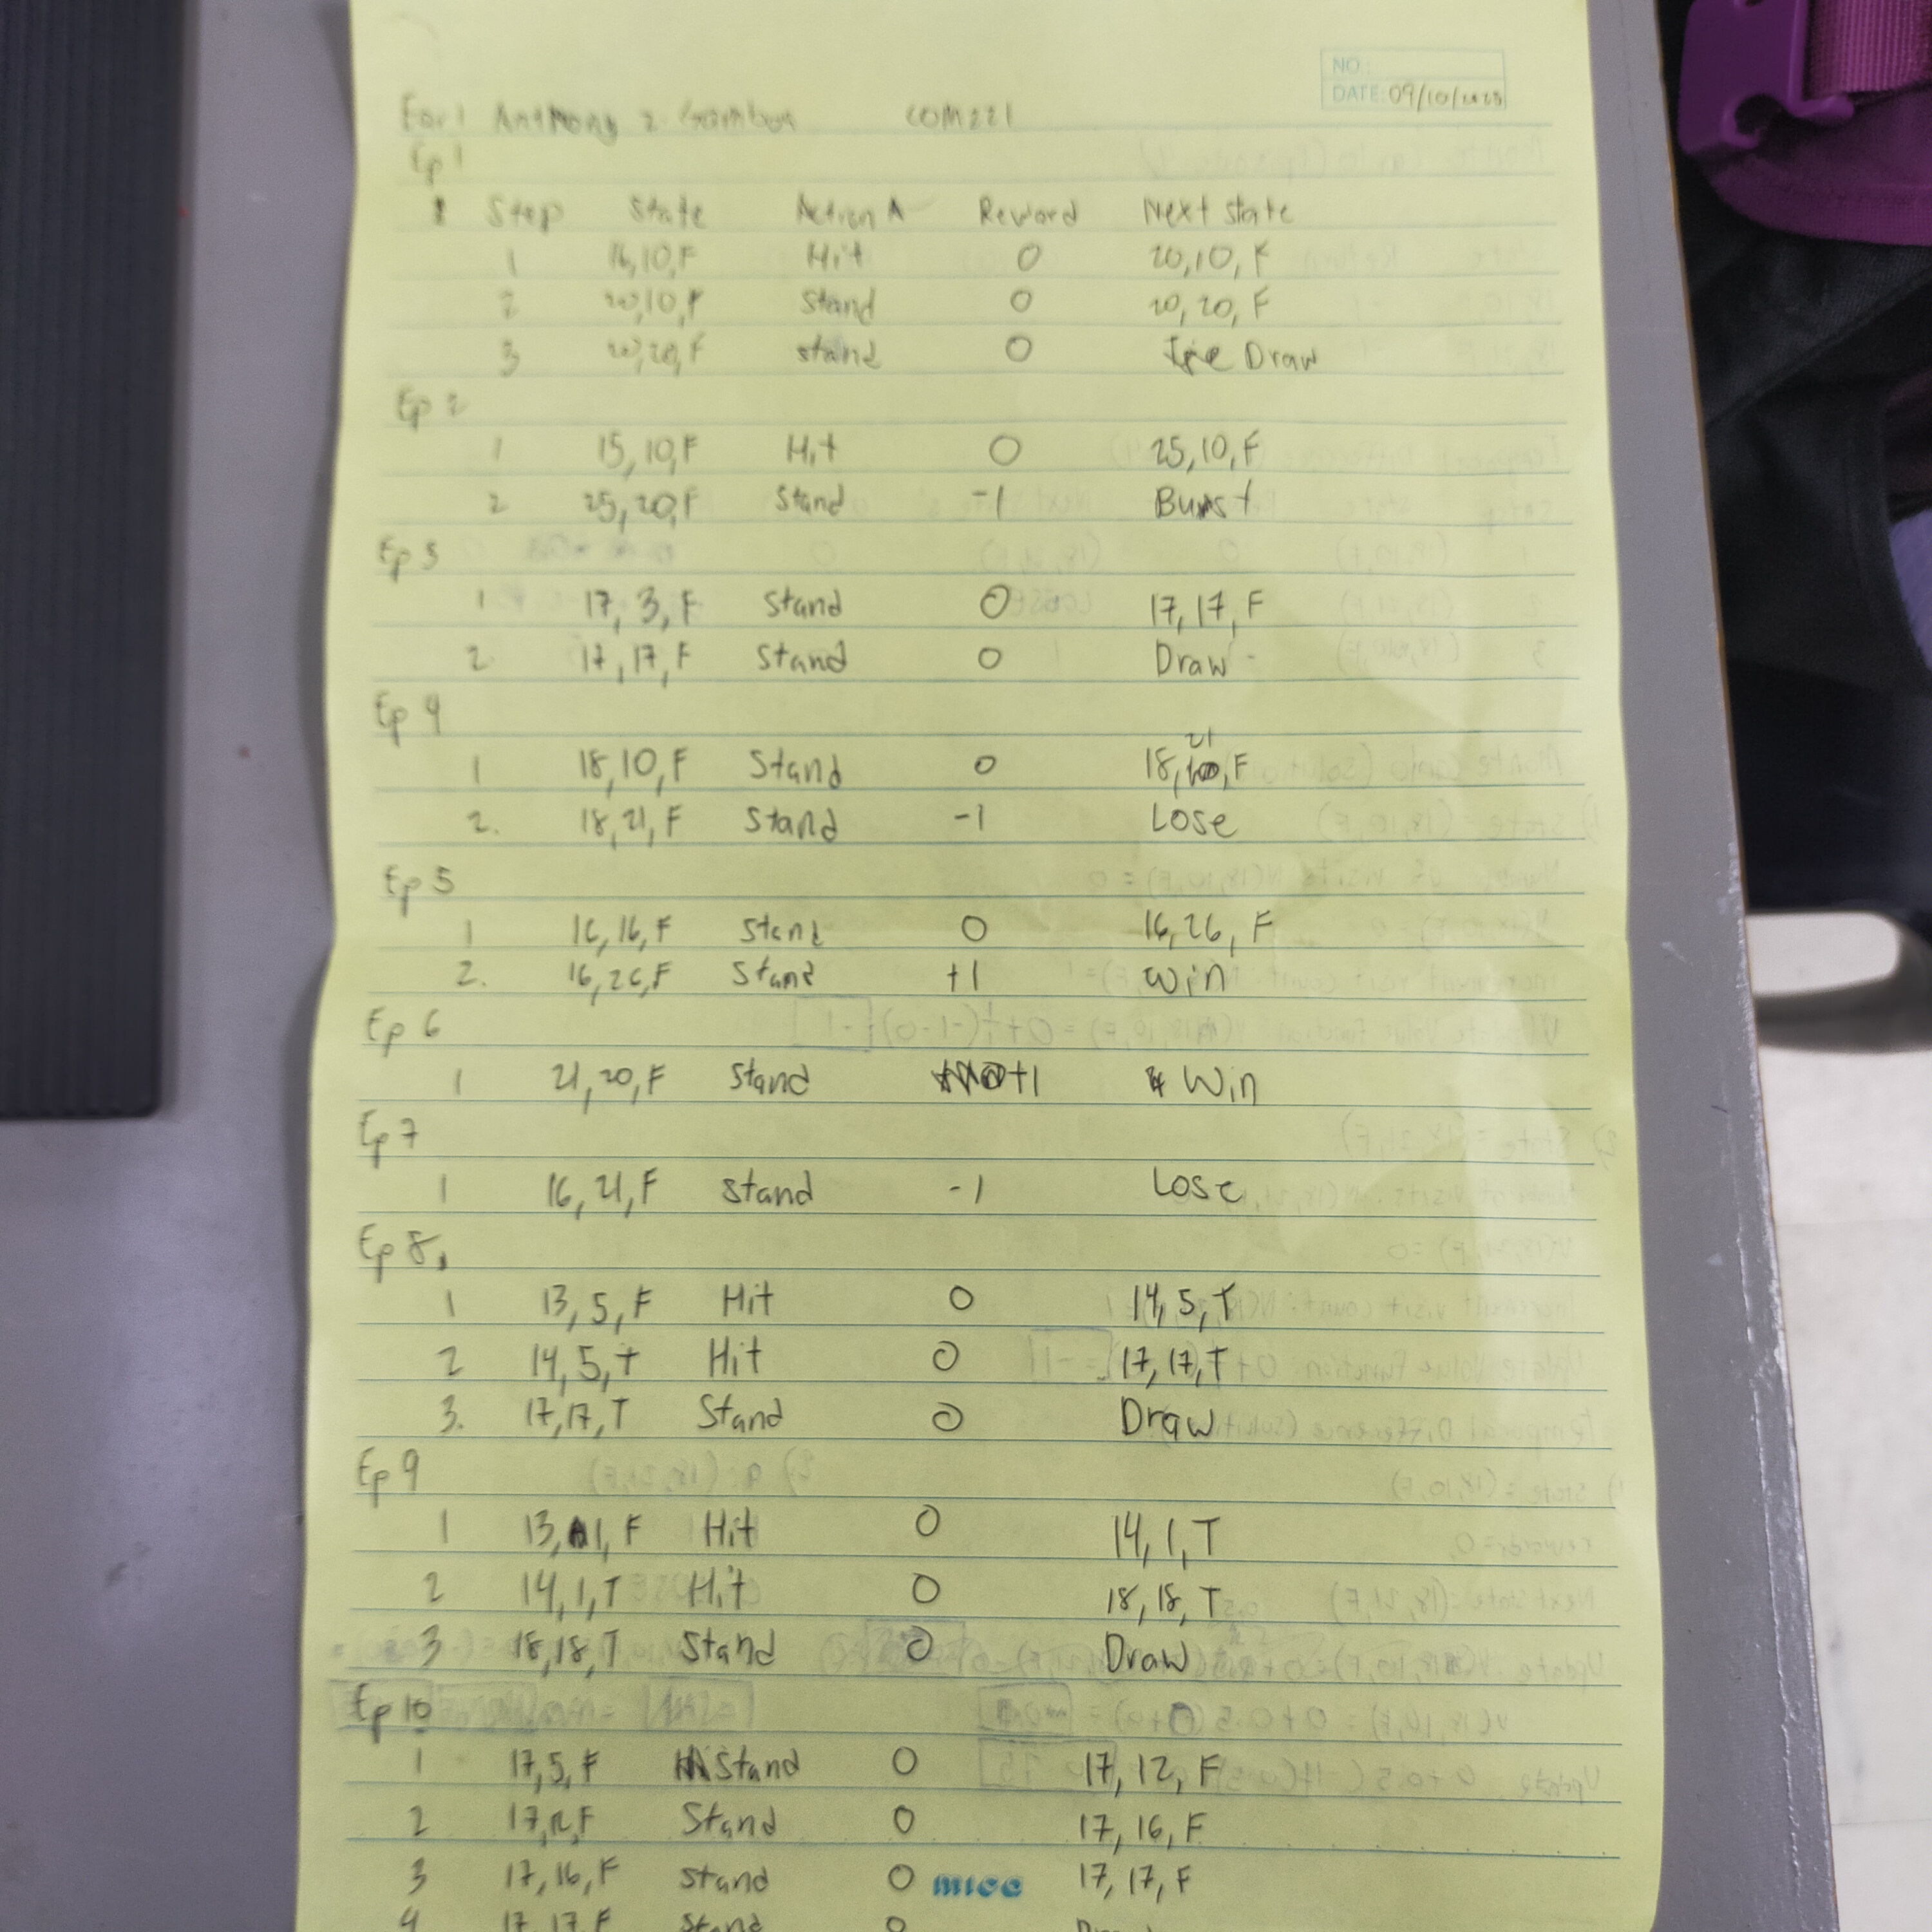 NO.:
DATE: 09/10/2025
Earl Anthony Z Gamboa COM221
Ep 1
Step State Action A Reward Next state
1 16,10,F Hit 0 20,10,F
2 20,10,F Stand 0 20,20,F
3 20,20,F stand 0 Tie Draw
Ep 2
1 15,10,F Hit 0 25,10,F
2 25,20,F Stand -1 Burst
Ep 3
1 17,3,F Stand 0 17,17,F
2 17,17,F Stand 0 Draw
Ep 4
1 18,10,F Stand 0 18,21,F
2. 18,21,F Stand -1 Lose
Ep 5
1 16,16,F Stand 0 16,26,F
2. 16,26,F Stand +1 Win
Ep 6
1 21,20,F Stand +1 Win
Ep 7
1 16,21,F Stand -1 Lose
Ep 8
1 13,5,F Hit 0 14,5,T
2 14,5,T Hit 0 17,17,T
3. 17,17,T Stand 0 Draw
Ep 9
1 13,1,F Hit 0 14,1,T
2 14,1,T Hit 0 18,18,T
3 18,18,T Stand 0 Draw
Ep 10
1 17,5,F Stand 0 17,12,F
2 17,12,F Stand 0 17,16,F
3 17,16,F Stand 0 17,17,F
mico
4 17,17,F Stand 0 Draw